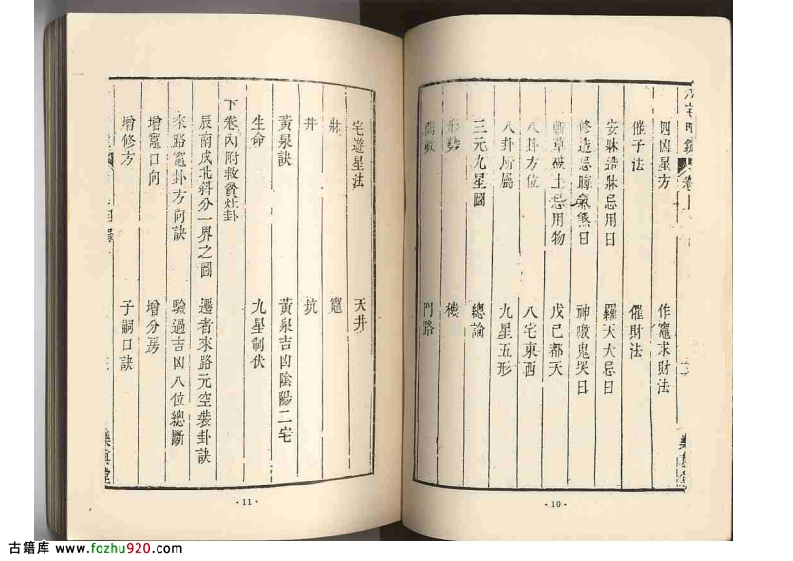 八宅明鏡 卷上
四凶星方 作竈求財法
催子法 催財法
安牀造牀忌用日 羅天大忌日
修造忌 日 神嗷鬼哭日
斬草破土忌用物 戊己都天
八卦方位 八宅東西
八卦所屬 九星五形
三元九星圖 總論
形勢 樓
間數 門路
樂真堂
·10·
宅遊星法 天井
牀 竈
井 坑
黃泉訣 黃泉吉凶陰陽二宅
生命 九星制伏
下卷內附救貧灶卦
辰南戌北斜分一界之圖 遷者來路元空裝卦訣
來路竈卦方向訣 驗過吉凶八位總斷
增竈口向 增分房
增修方 子嗣口訣
樂真堂
·11·
古籍库 www.fozhu920.com